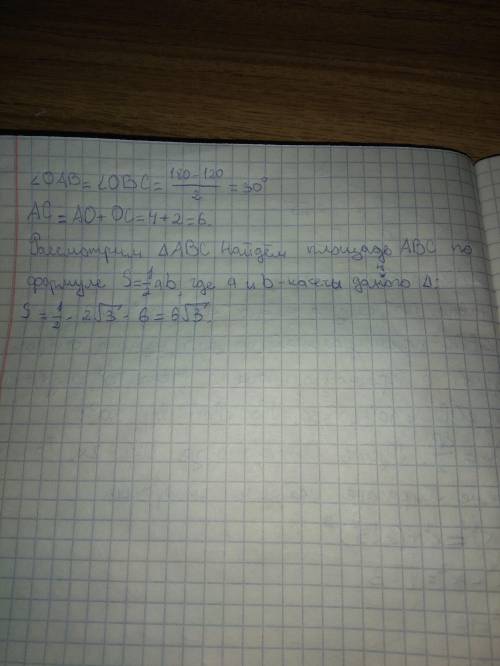 ∠OAB = ∠OBC = (180 - 120)/2 = 30°
AC = AO + OC = 4 + 2 = 6.
Рассмотрим ΔABC найдём площадь ABC по
формуле S = 1/2 ab, где a и b - катеты даного Δ:
S = 1/2 · 2√3 · 6 = 6√3.